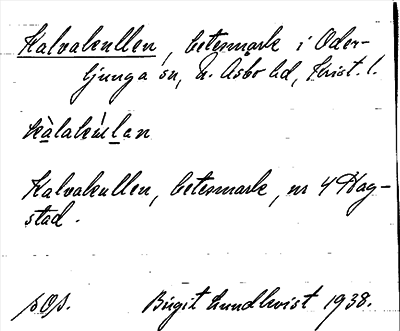 Kalvakullen, betesmark i Oder-
ljunga sn, N. Åsbo hd, Krist. l.
kàlakúlan
Kalvakullen, betesmark, nr 4 Hag-
stad.
pOp. Birgit Lundkvist 1938.